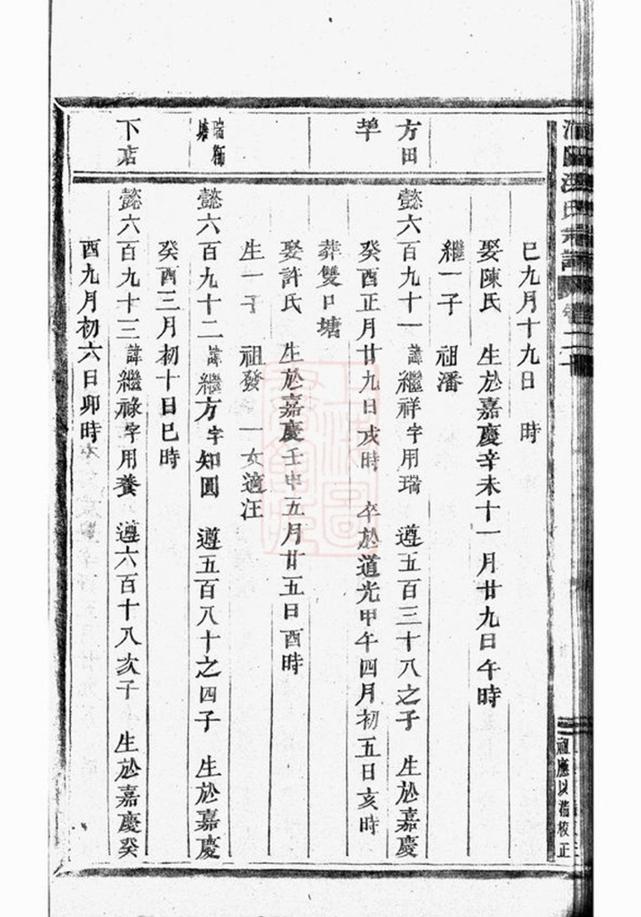 巳九月十九日　時
娶陳氏　生於嘉慶辛未十一月廿九日午時
繼一子　祖潘
方田
懿六百九十一諱繼祥字用瑞　遵五百三十八之子　生於嘉慶
癸酉正月廿九日戌時　卒於道光甲午四月初五日亥時
葬雙口塘
娶許氏　生於嘉慶壬申五月廿五日酉時
生一子　祖發　一女適汪
懿六百九十二諱繼方字知圓　遵五百八十之四子　生於嘉慶
癸酉三月初十日巳時
下店
懿六百九十三諱繼祿字用養　遵六百十八次子　生於嘉慶癸
酉九月初六日卯時